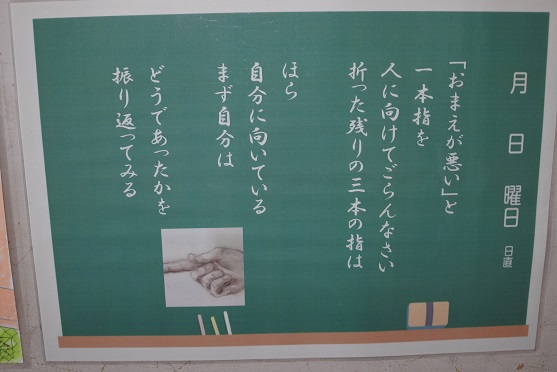 月　日　曜日　日直
「おまえが悪い」と
一本指を
人に向けてごらんなさい
折った残りの三本の指は
ほら
自分に向いている
まず自分は
どうであったかを
振り返ってみる